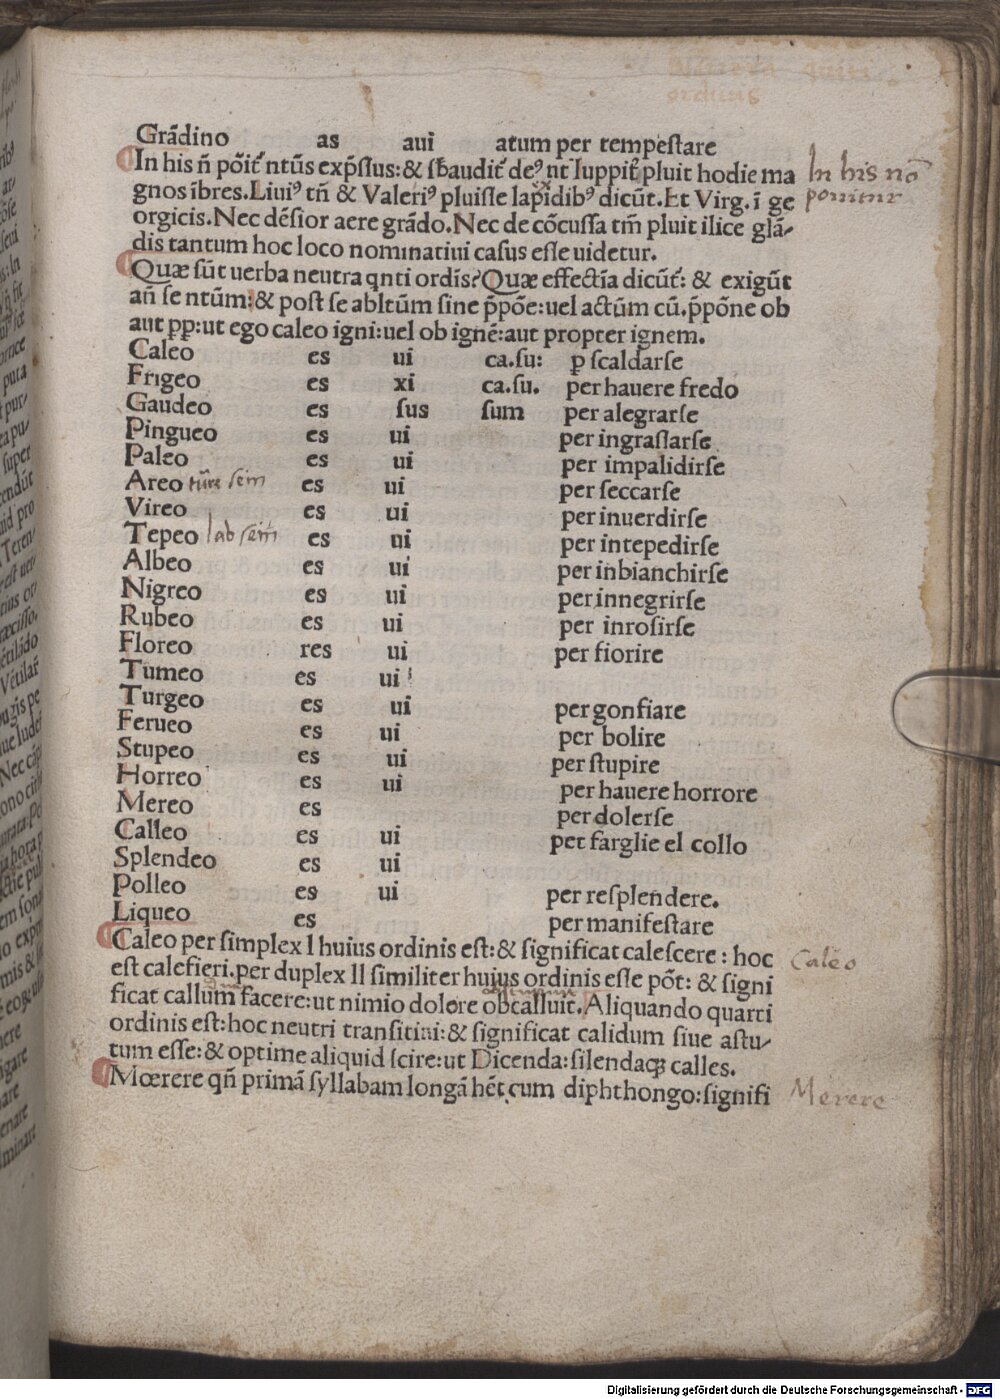 Grãdino as aui atum per tempestare
In his ñ põit᷑ ntũs exp̃ssius: & sb̃audit᷑ deꝰ nt Iuppit᷑ pluit hodie ma
gnos ĩbres. Liuiꝰ tñ & Valeriꝰ pluisse lapidibꝰ dicũt. Et Virg. ĩ ge
orgicis. Nec dẽsior aere grãdo. Nec de cõcussa tm̃ pluit ilice glã-
dis tantum hoc loco nominatiui casus esse uidetur.
Quæ sũt uerba neutra qnti ordĩs? Quæ effectĩa dicũt᷑: & exigũt
añ se ntũm: & post se abltũm sine p̃põe: uel actũm cũ. p̃põne ob
aut pp: ut ego caleo igni: uel ob ignẽ: aut propter ignem.
Caleo es ui ca.su: p scaldarse
Frigeo es xi ca.su. per hauere fredo
Gaudeo es sus sum per alegrarse
Pingueo es ui per ingrassarse
Paleo es ui per impalidirse
Areo es ui per seccarse
Vireo es ui per inuerdirse
Tepeo es ui per intepedirse
Albeo es ui per inbianchirse
Nigreo es ui per innegrirse
Rubeo es ui per inrosirse
Floreo res ui per fiorire
Tumeo es ui
Turgeo es ui per gonfiare
Ferueo es ui per bolire
Stupeo es ui per stupire
Horreo es ui per hauere horrore
Mereo es per dolerse
Calleo es ui per farglie el collo
Splendeo es ui
Polleo es ui per resplendere.
Liqueo es per manifestare
Caleo per simplex l huius ordinis est: & significat calescere: hoc
est calefieri. per duplex ll similiter huius ordinis esse põt: & signi
ficat callum facere: ut nimio dolore obcalluit. Aliquando quarti
ordinis est: hoc neutri transitiui: & significat calidum siue astu-
tum esse: & optime aliquid scire: ut Dicenda: silendaqꝫ calles.
Mœrere qñ primã syllabam longã hẽt cum diphthongo: signifi
In his nõ
ponitur
Caleo
Merere
Digitalisierung gefördert durch die Deutsche Forschungsgemeinschaft - DFG